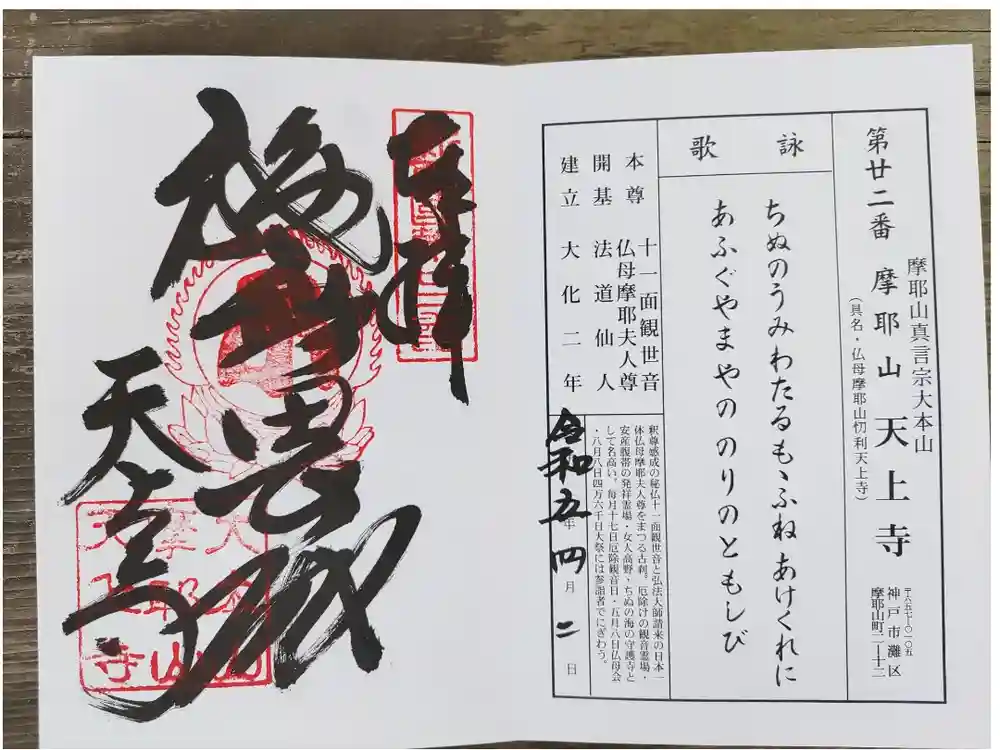 摩耶山真言宗大本山
第廿二番 摩耶山 天上寺
(具名・仏母摩耶山忉利天上寺)
〒六五七-〇一〇五
神戸市灘区
摩耶山町二-十二
詠歌
ちぬのうみわたるもゝふねあけくれに
あふぐやまやの のりのともしび
本尊 十一面観世音
仏母摩耶夫人尊
開基 法道仙人
建立 大化二年
釈尊感成の秘仏十一面観世音と弘法大師請来の日本一
体仏母摩耶夫人尊をまつる古刹。厄除けの観音霊場・
安産腹帯の発祥霊場・女人高野・ちぬの海の守護寺と
して名高い。毎月十七日厄除観音日・五月八日仏母会
・八月八日四万六千日大祭には参詣者でにぎわう。
令和五年四月二日
奉拝
天上寺
大本山
摩耶山
天上寺